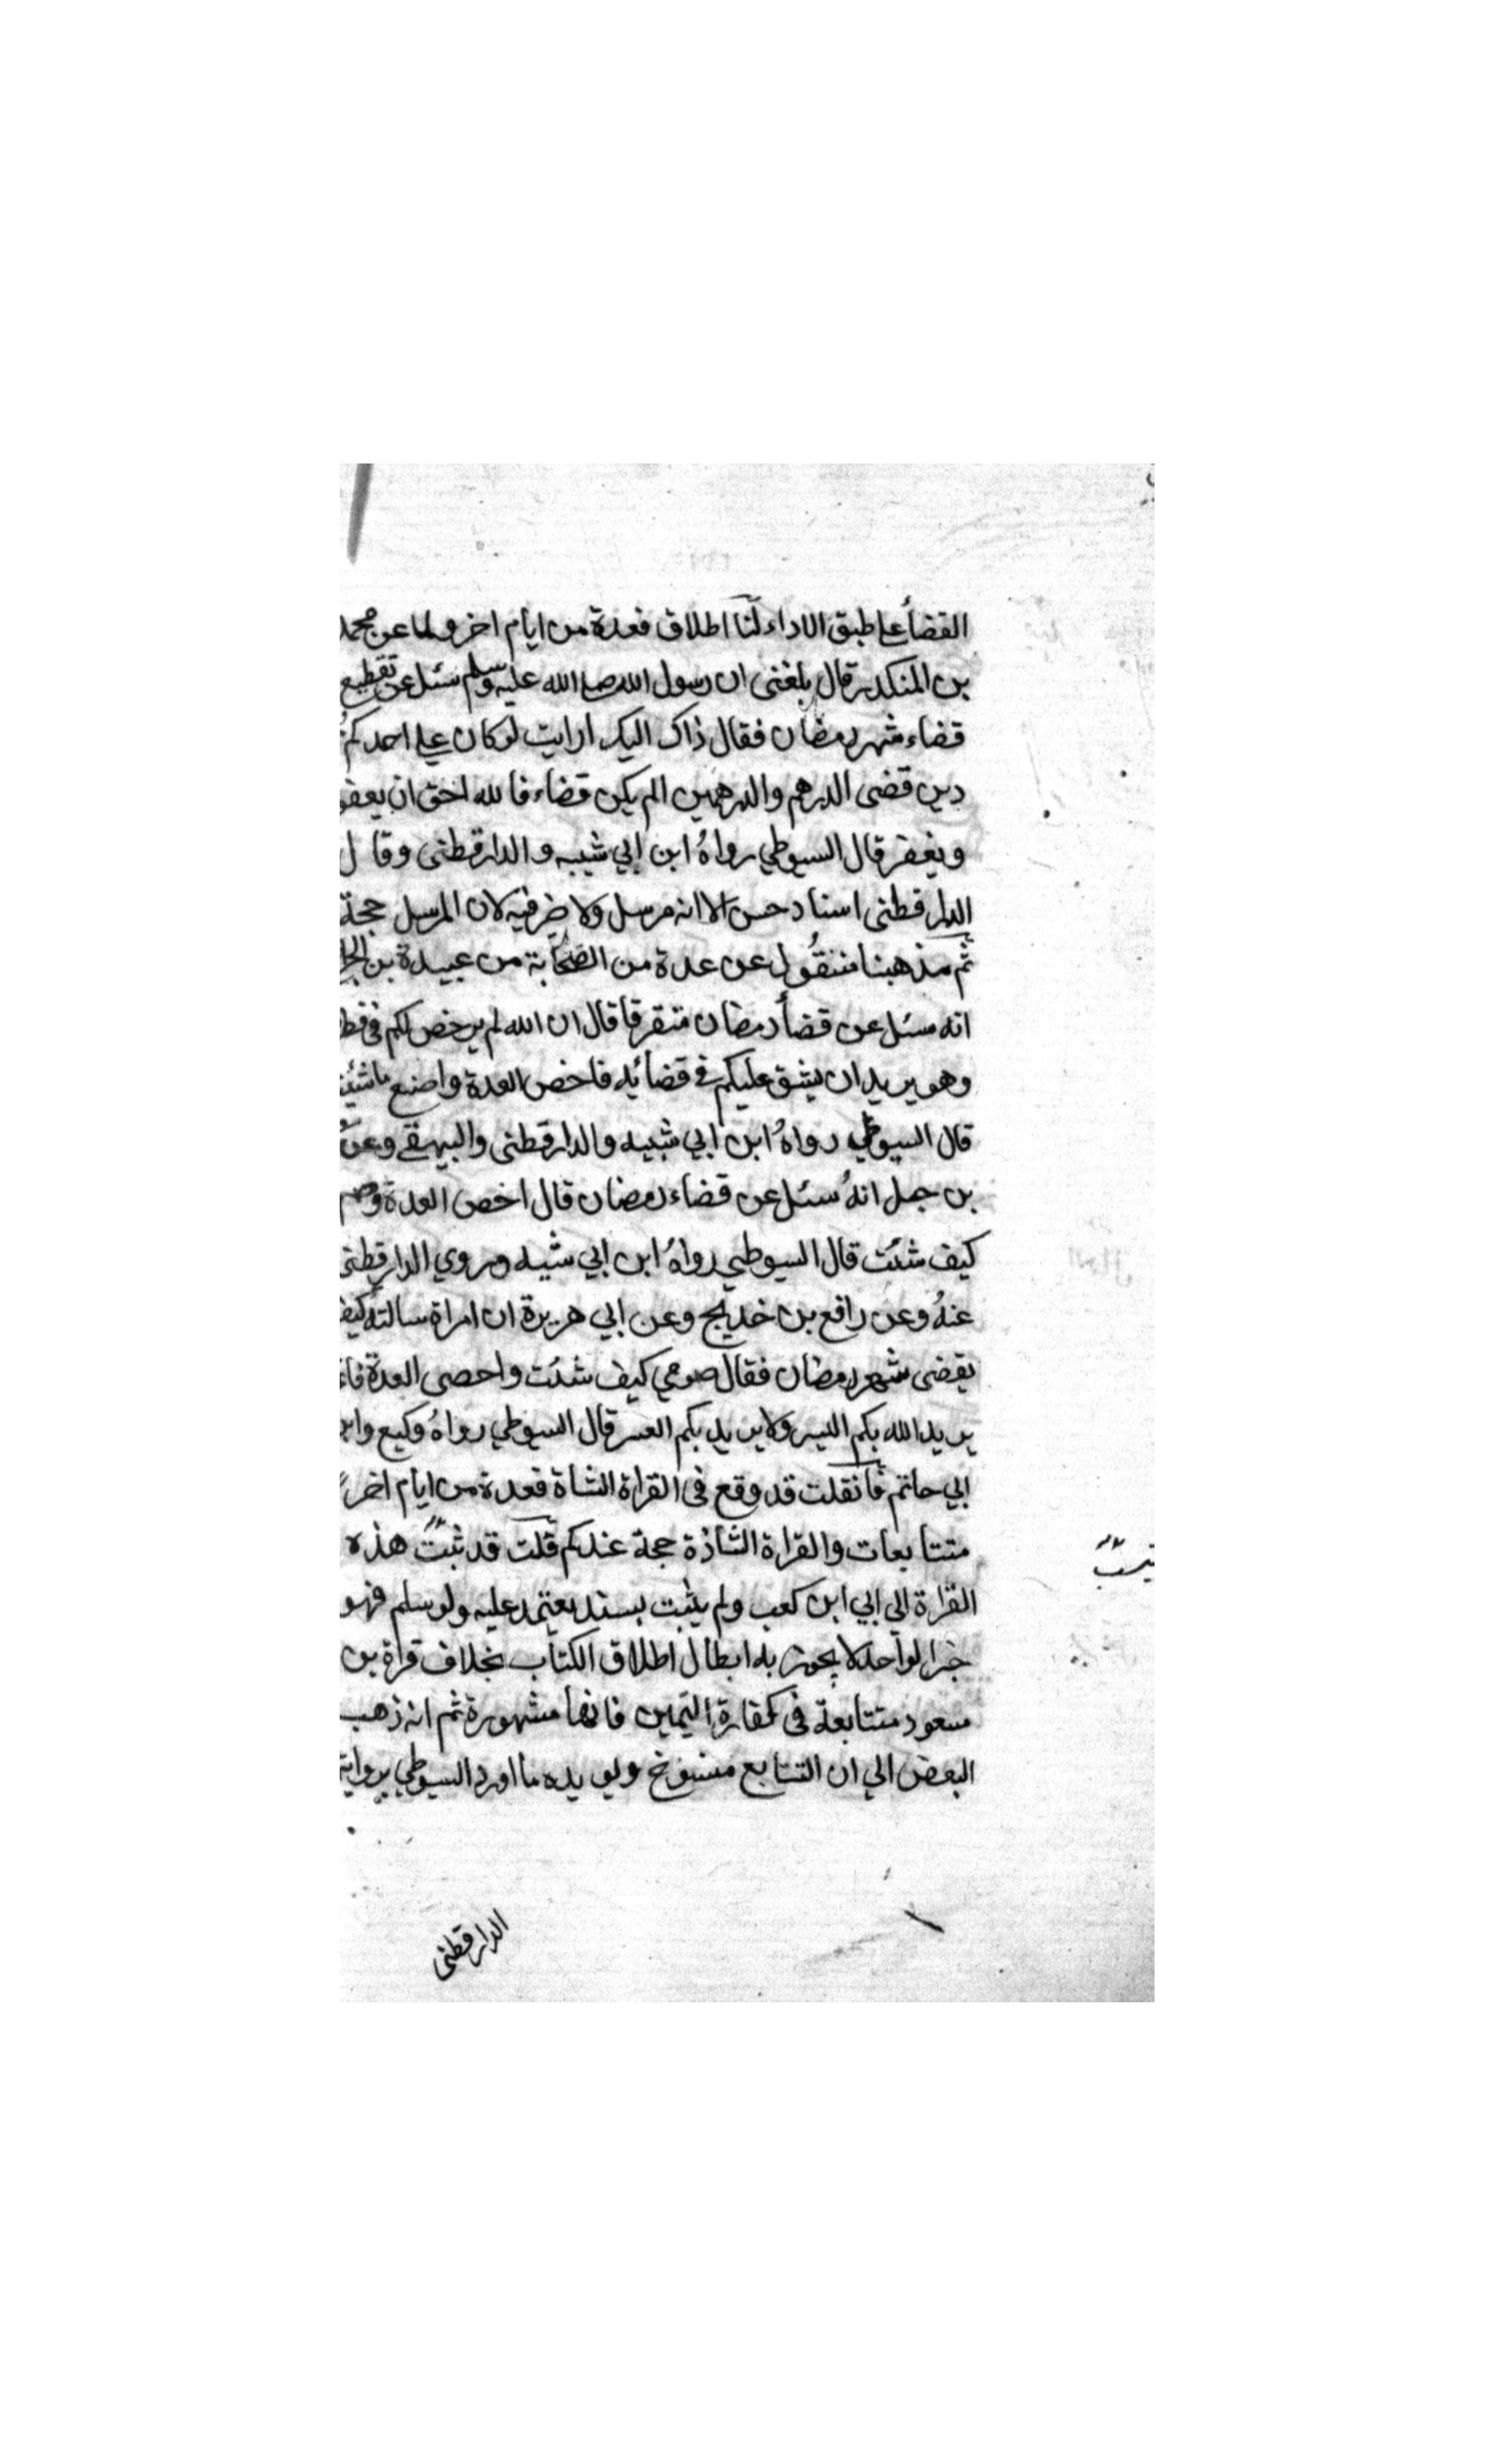 القضأ على طبق الاداء لنا اطلاق فعدة من ايام اخر ولما عن محمد
بن المنكدر قال بلغنى ان رسول الله صلى الله عليه وسلم سئل عن تقطيع
قضاء شهر رمضان فقال ذاك اليك ارايت لو كان على احدكم
دين قضى الدرهم والدرهمين الم يكن قضاء فالله احق ان يعفو
ويغفر قال السيوطي رواهُ ابن ابي شيبه والدارقطنى وقال
الدارقطنى اسناد حسن الا انه مرسل ولا ضر فيه لان المرسل حجة
ثم مذهبنا منقول عن عدة من الصحابة من عبيدة بن الجر
انه سئل عن قضأ رمضان متفرقا قال ان الله لم يرخص لكم فى فط
وهو يريد ان يشق عليكم في قضائه فاخص العدة واصنع ماشئت
قال السيوطي رواهُ ابن ابي شبيه والدارقطنى والبيهقي وعن
بن جبل انهُ سئل عن قضاء رمضان قال اخص العدة وصم
كيف شئت قال السيوطي رواهُ ابن ابي شيبه وروي الدارقطنى
عنهُ وعن رافع بن خديج وعن ابي هريرة ان امراة سالته كيف
يقضى شهر رمضان فقال صومي كيف شئت واحصى العدة فا
يريد الله بكم اليسر ولا يريد بكم العسر قال السيوطي رواهُ وكيع وابن
ابي حاتم فان قلت قد وقع فى القراة الشاة فعدة من ايام اخر
متتابعات والقراة الشاذة حجة عندكم قلت قد ثبت هذه
القراة الى ابي ابن كعب ولم يثبت بسند يعتمد عليه ولو سلم فهو
خبر الواحد لا يجوز به ابطال اطلاق الكتاب بخلاف قراة بن
مسعود متتابعة فى كفارة اليمين فانها مشهورة ثم انه ذهب
البعض الي ان التتابع منسوخ ويويده ما اورد السيوطي برواية
الدارقطنى